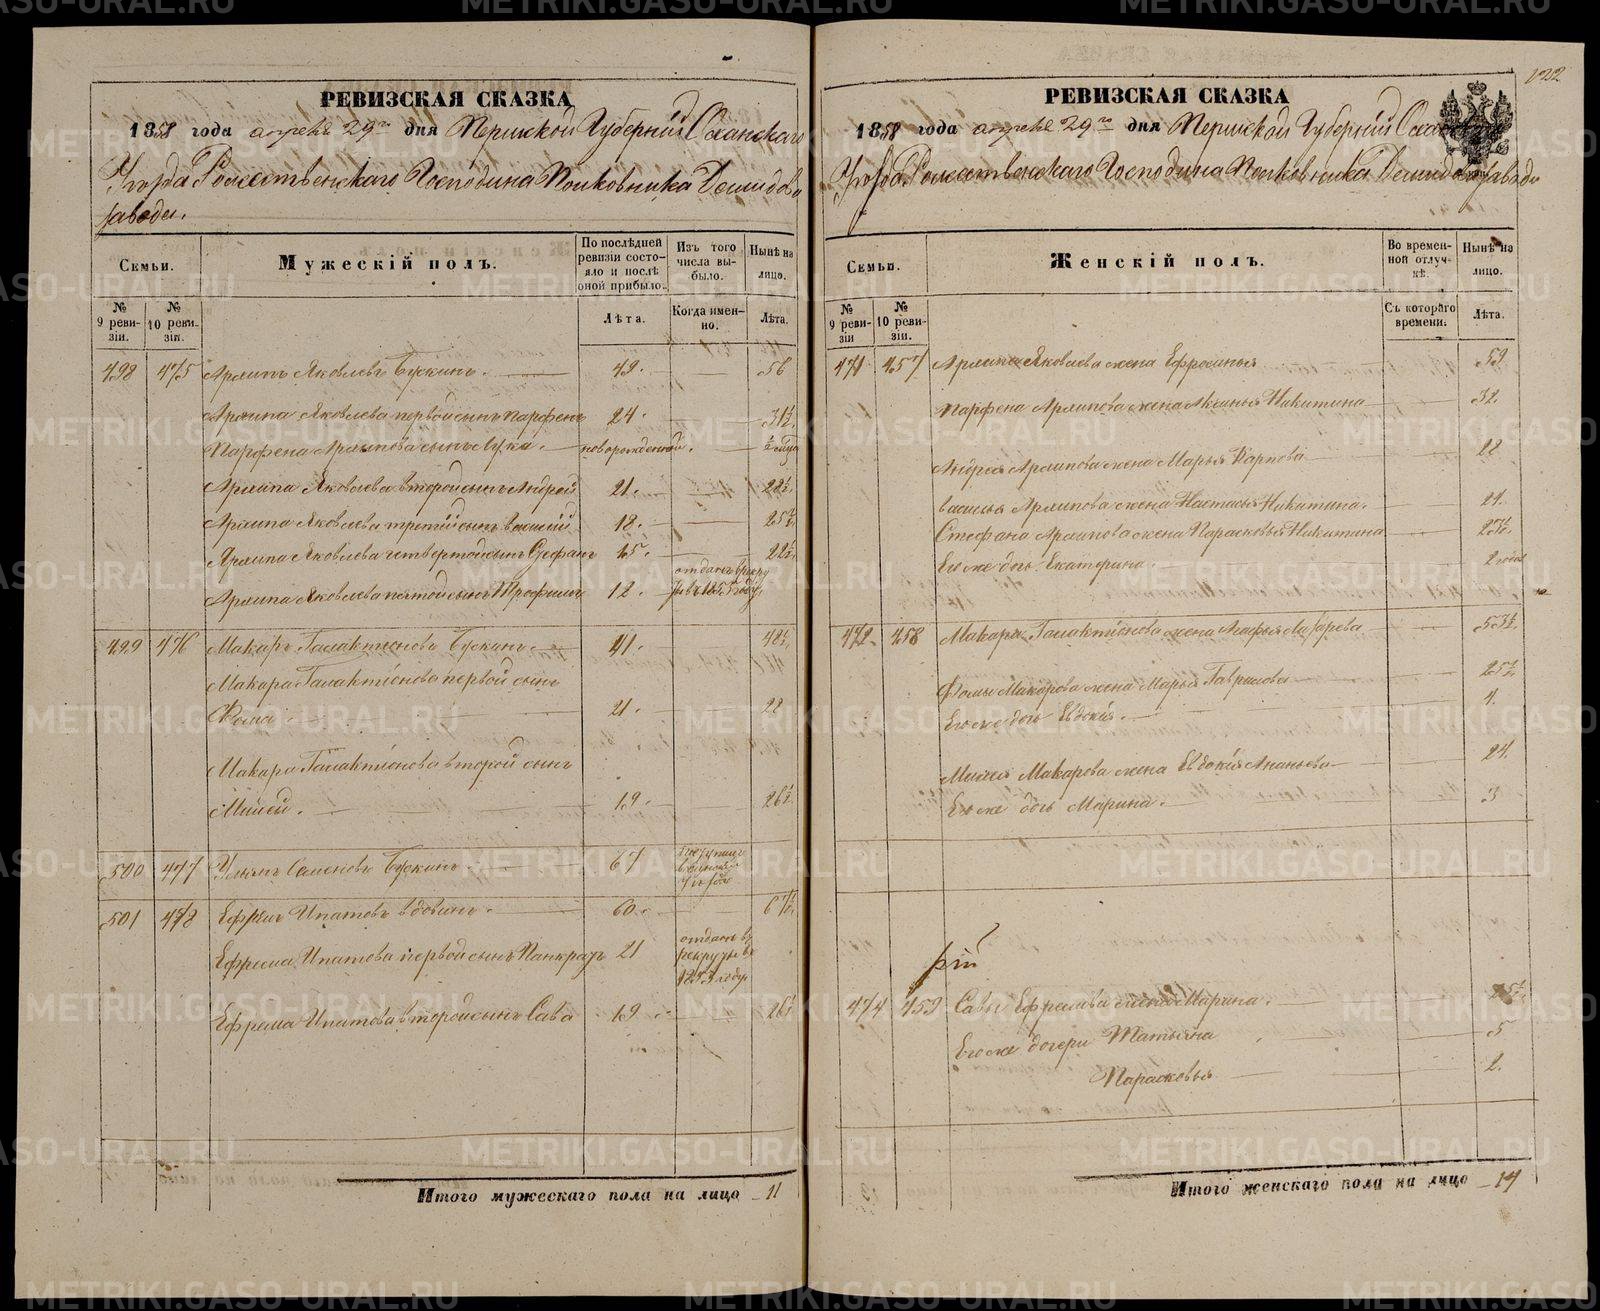 РЕВИЗСКАЯ СКАЗКА
1858 года апреля 29го дня Пермской Губернии Оханскаго
Уезда Рожественскаго Господина Полковника Демидова
завода.
Семьи.
Мужескій полъ.
По послѣдней ревизіи состояло и послѣ оной прибыло.
Изъ того числа выбыло.
Нынѣ на лицо.
№ 9 ревизіи.
№ 10 ревизіи.
Лѣта.
Когда именно.
Лѣта.
498 475 Архипъ Яковлевъ Бускинъ. 49. 56
Архипа Яковлева первой сынъ Парфенъ 24. 31½
Парфена Архипова сынъ Лука. новорожденной.
Архипа Яковлева второй сынъ Андрей 21. 28½
Архипа Яковлева третій сынъ Василій 18. 25½
Архипа Яковлева четвертой сынъ Стефанъ 15. 22½
Архипа Яковлева пятой сынъ Трофимъ 12. отданъ въ рекруты въ 1855 году
499 476 Макаръ Галактіоновъ Бускинъ. 41. 48½
Макара Галактіонова первой сынъ
Фома 21. 28
Макара Галактіонова второй сынъ
Мисей. 19. 26½
500 477 Ульянъ Семеновъ Бускинъ 67
501 478 Ефремъ Ипатовъ вдовинъ. 60. 67½
Ефрема Ипатова первой сынъ Панкратъ 21 отданъ въ рекруты въ 1853 году
Ефрема Ипатова второй сынъ Сава 19 26½
Итого мужескаго пола на лицо 11
122
РЕВИЗСКАЯ СКАЗКА
1858 года апреля 29го дня Пермской Губернии Оханскаго
Уезда Рожественскаго Господина Полковника Демидова завода
Семьи.
Женскій полъ.
Во временной отлучкѣ.
Нынѣ на лицо.
№ 9 ревизіи
№ 10 ревизіи.
Съ котораго времени.
Лѣта.
471 457 Архипа Яковлева жена Ефросинья 59
Парфена Архипова жена Аксинья Никитина 32.
Андрея Архипова жена Марья Карпова 28
Василья Архипова жена Настасья Никитина. 21.
Стефана Архипова жена Парасковья Никитина 23½
Его же дочь Екатерина. 2
472 458 Макара Галактіонова жена Агафья Лазарева 53½
Фомы Макарова жена Марья Гаврилова 25½
Его же дочь Евдокія. 4.
Мисея Макарова жена Евдокія Ананьева 24.
Его же дочь Марина. 3
474 459 Савы Ефремова жена Марина. 25½
Его же дочери Татьяна 5
Парасковья 2.
Итого женскаго пола на лицо 14
METRIKI.GASO-URAL.RU